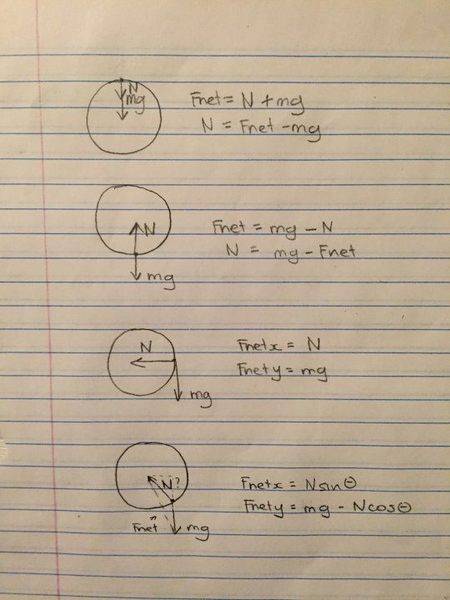 N
mg
Fnet = N + mg
N = Fnet - mg
N
mg
Fnet = mg - N
N = mg - Fnet
N
mg
Fnetx = N
Fnety = mg
N?
Fnet
mg
Fnetx = Nsinθ
Fnety = mg - Ncosθ